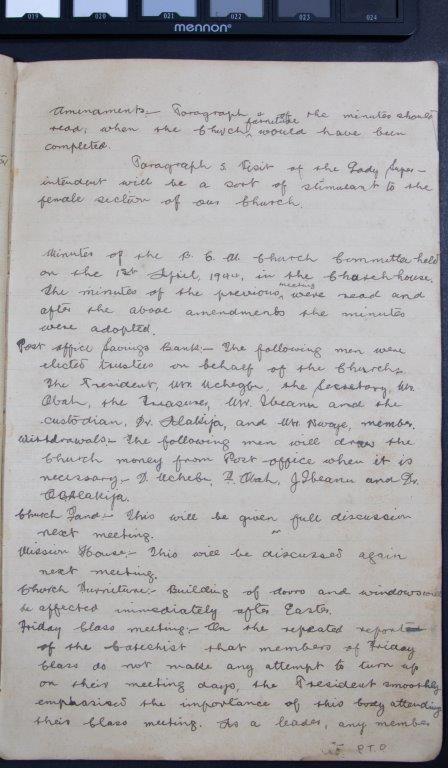 019 020 021 022 023 024
mennon
Amendments:- Paragraph 2 of the minutes should
read, when the Church furniture would have been
completed.
Paragraph 5. Visit of the Lady Super-
intendent will be a sort of stimulant to the
female section of our Church.
Minutes of the B. C. M. Church Committee held
on the 1st April, 1944, in the Church house.
The minutes of the previous meeting were read and
after the above amendments the minutes
were adopted.
Post office Savings Bank:- The following men were
elected trustees on behalf of the Church:-
The President, Mr. Uchegbu, the Secretary, Mr.
Obah, the Treasurer, Mr. Ibeanu and the
custodian, Dr. Alakija, and Mr. Nwaje, member.
Withdrawals:- The following men will draw the
Church money from Post-office when it is
necessary:- D. Uchebu, P. Obah, J Ibeanu and Dr.
Alakija.
Church Fund:- This will be given full discussion
next meeting.
Mission House:- This will be discussed again
next meeting.
Church Furniture:- Building of doors and windows will
be affected immediately after Easter.
Friday Class meeting:- On the repeated report
of the Catechist that members of Friday
Class do not make any attempt to turn up
on their meeting days, the President smoothly
emphasised the importance of this body attending
their Class meeting. As a leader, any member
P.T.O